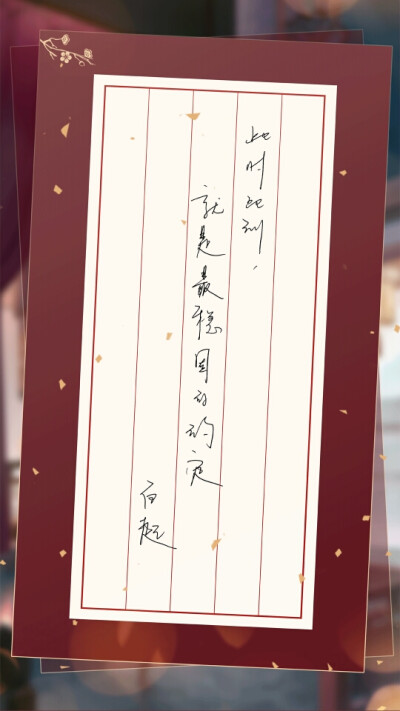 此时此刻，
就是最稳固的约定
白起